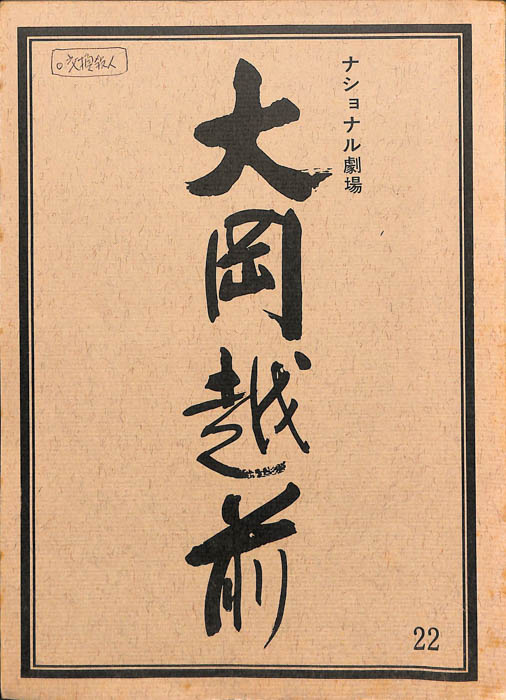 ナショナル劇場
○交換殺人
大岡越前
22